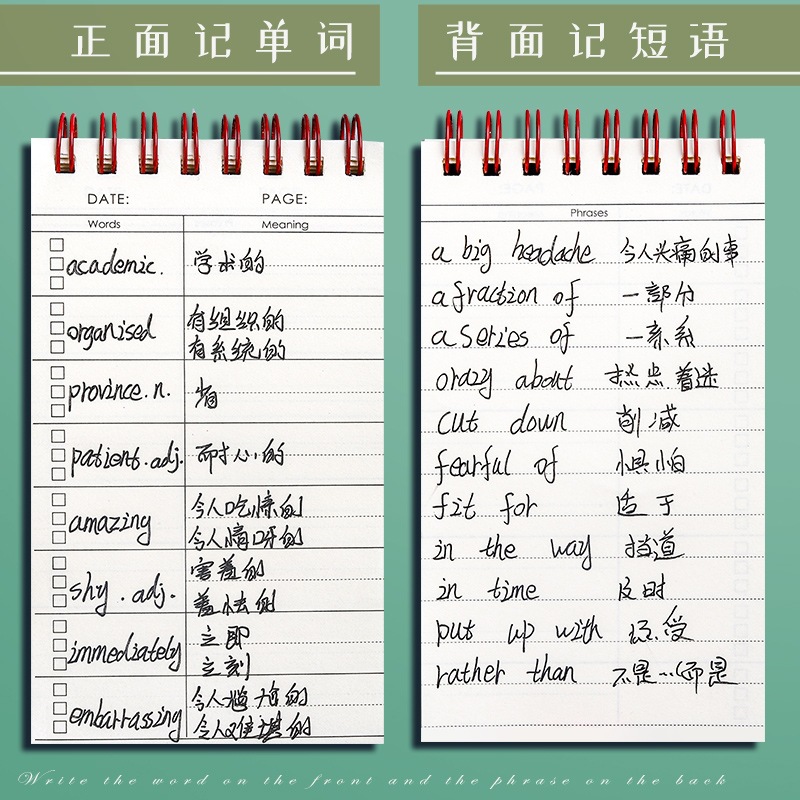 正面记单词
背面记短语
DATE: PAGE:
Words Meaning
academic. 学术的
organised 有组织的
有系统的
province.n. 省
patient.adj. 耐心的
amazing 令人吃惊的
令人惊讶的
shy.adj. 害羞的
羞怯的
immediately 立即
立刻
embarrassing 令人尴尬的
令人难堪的
Phrases
a big headache 令人头痛的事
a fraction of 一部分
a series of 一系系
orazy about 着迷
cut down 削减
fearful of 惧怕
fit for 适于
in the way 挡道
in time 及时
put up with 忍受
rather than 不是…而是
Write the word on the front and the phrase on the back